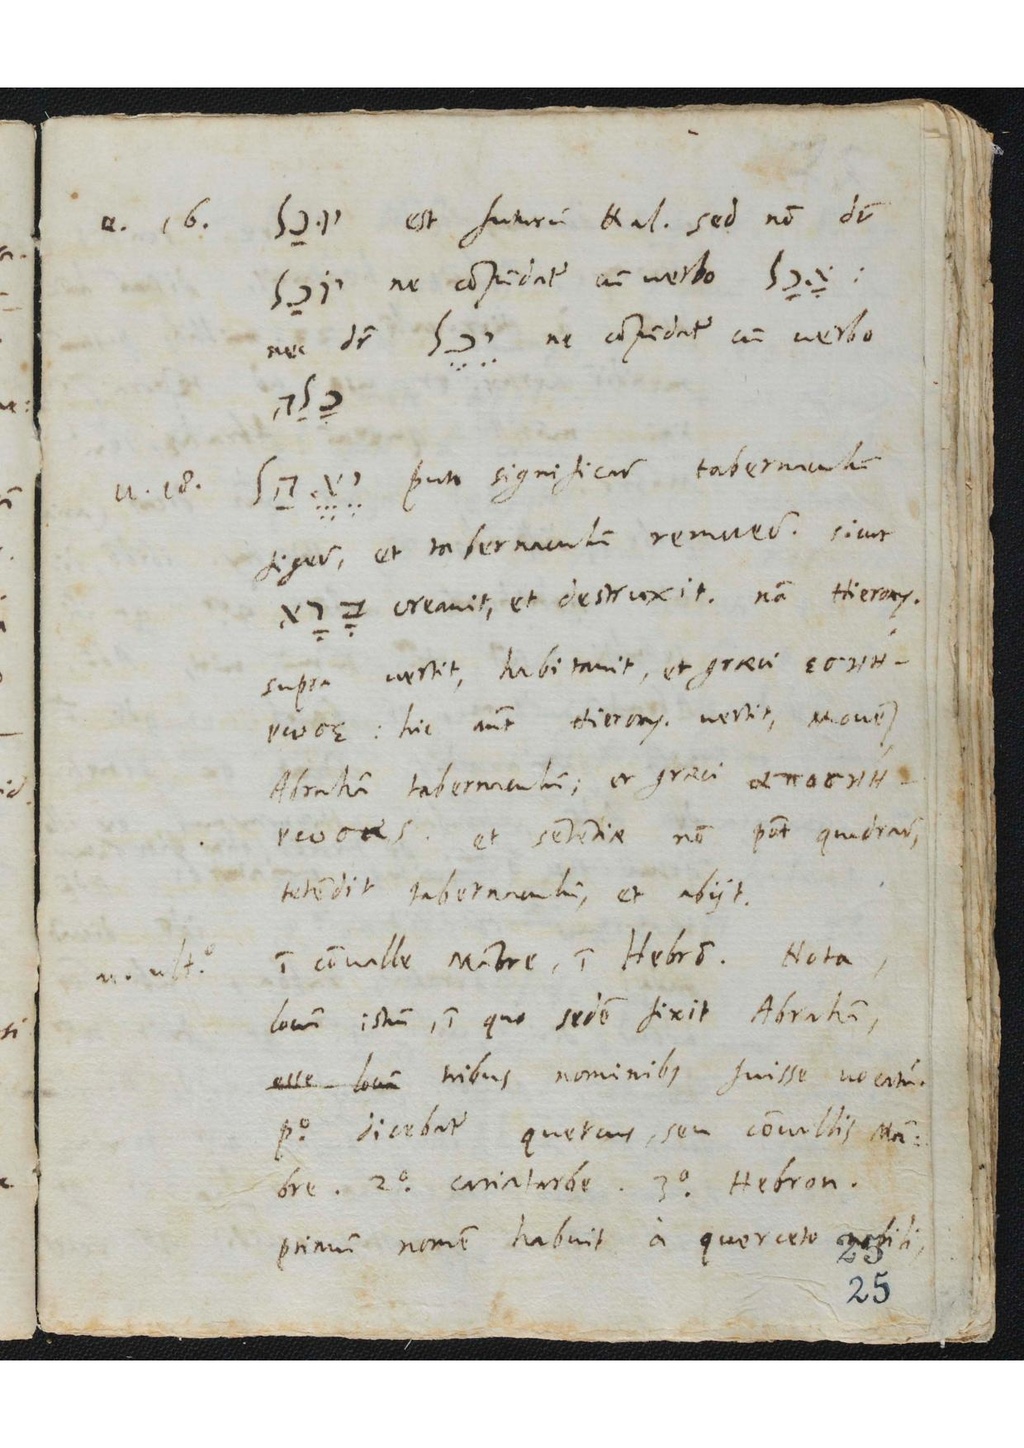 u. 16. יוּכַל est futurū Kal. sed nō dr̄
יוֹכַל ne cōfūdat᷑ cū uerbo אָכַל :
nec dr̄ יִכַל ne cōfūdat᷑ cū uerbo
כָּלָה
u. 18. יֶאֱהַל puto significar̄ tabernaculū
figer̄, et tabernaculū remouer̄. sicut
בָּרָא creauit, et destruxit. nā Hierony.
supra uertit, habitauit, et græci εσκη-
νωσε : hic aūt Hierony. uertit, Mouēs
Abrahā tabernaculū; et græci αποσκη-
νωσας. et sētētiæ nō pōt quadrar̄,
tetēdit tabernaculū, et abijt.
u. ult.º ī cōualle Mābre, ī Hebrō. Nota,
locū istū, ī quo sedē fixit Abrahā,
esse locū tribus nominibs fuisse uocatū.
pº. dicebat᷑ quercus, seu cōuallis Mā:
bre. 2º. cariatarbe. 3º. Hebron.
primū nomē habuit à querceto nobili,
23
25